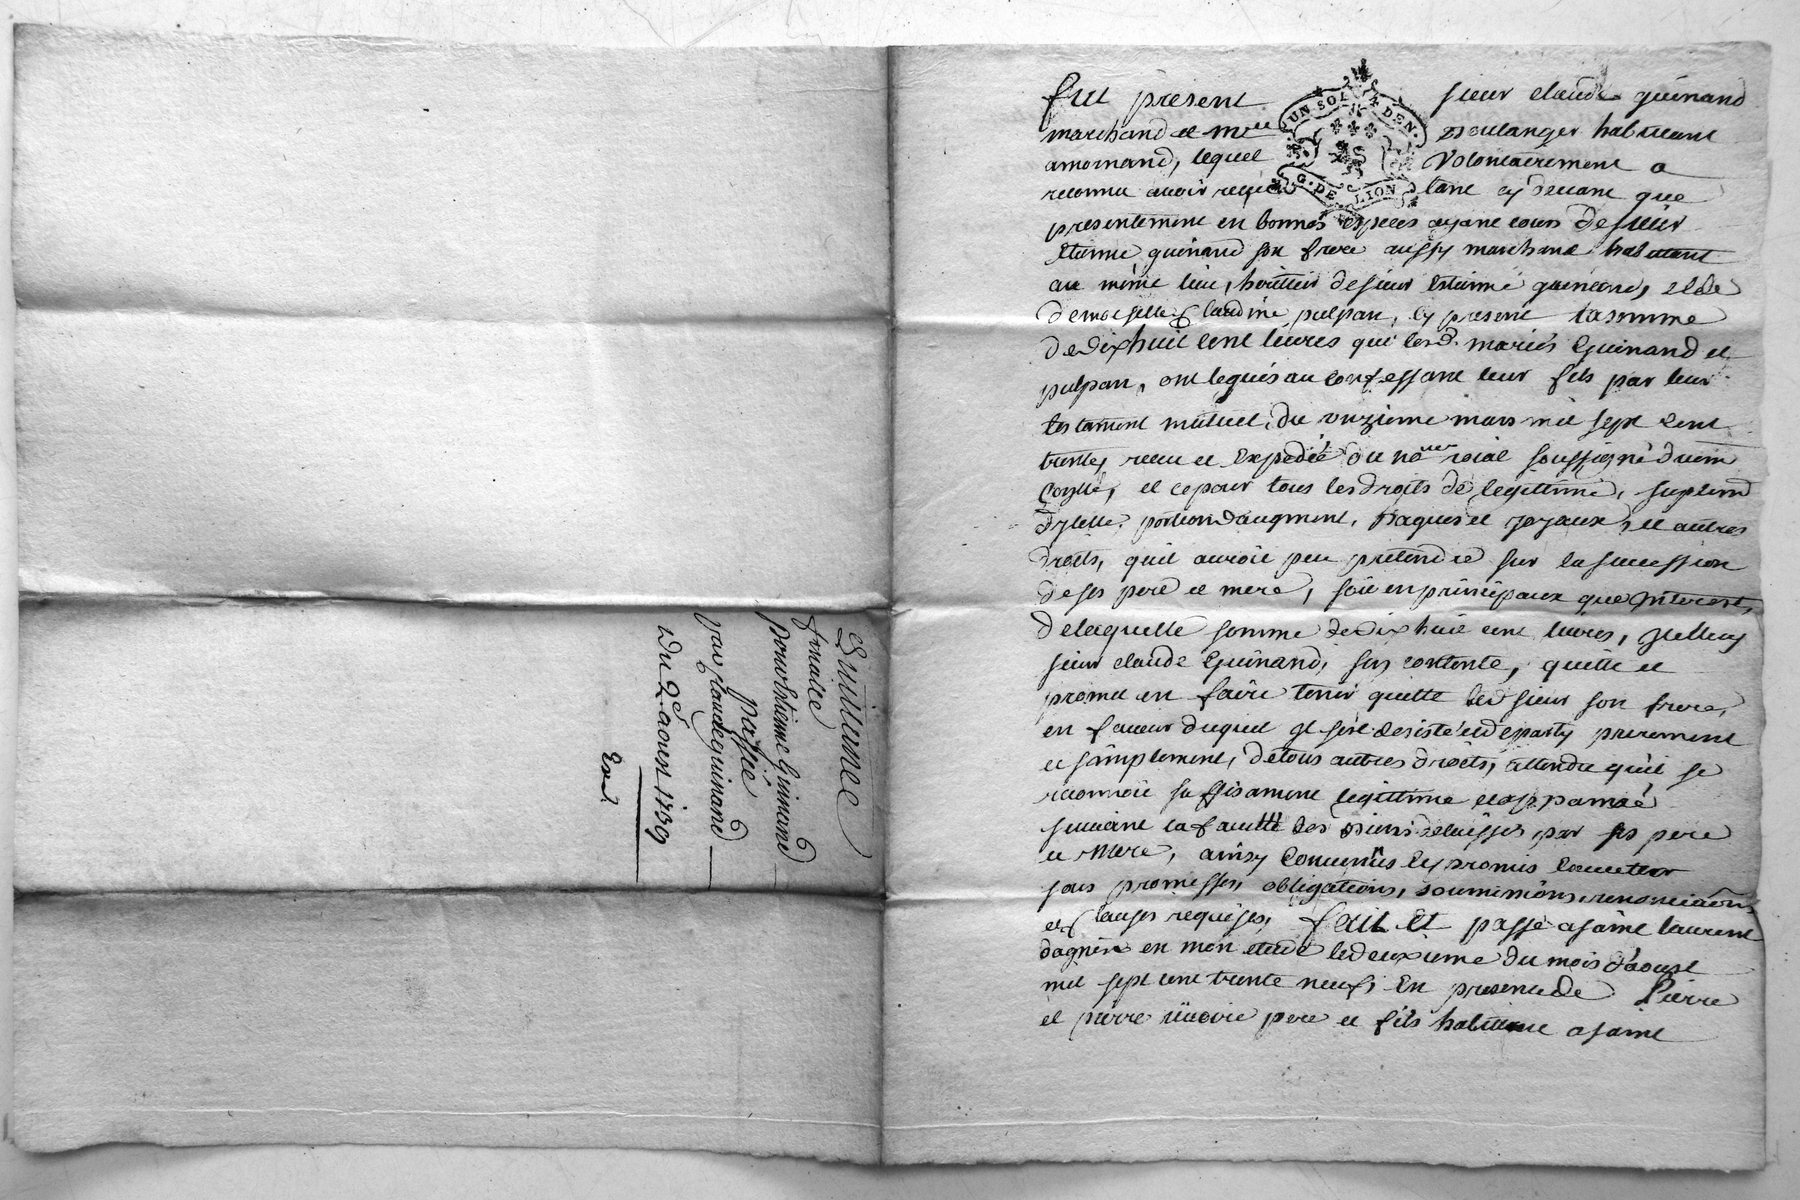 Quittance
finalle
pour Etienne Guinand
passée
par Claude guinand
Du 2e aoust 1739
UN SOL 4 DEN.
G. DE LION
fut present sieur claude guinand
marchand et me Boulanger habitant
amornand, lequel volontairement a
reconnu avoir reçu tant cy devant que
presentement en bonnes especes ayant cours de sieur
Etienne guinand son frere aussy marchand habitant
au même lieu, heritier de sieur Estienne guinand, et de
demoiselle Claudine pulpan, cy present la somme
de dixhuit cent livres que lesd. mariés Guinand et
pulpan, ont legués au confessant leur fils par leur
testament mutuel, du onzieme mars mil sept cent
trente, receu et expedié du nore roial soussigné duem
Controllé, et ce pour tous les droits de legitime, suplement
d'ycelle, portion d'augment, Bagues et joyaux, et autres
droits, quil auroit peu pretendre sur la succession
de ses pere et mere, soit en principaux que interest,
de laquelle somme de dix huit cent livres, ycelluy
sieur claude Guinand, ses contente, quitte et
promet en faire tenir quitte led sieur son frere,
en faveur duquel il sest desisté et departy purement
et simplement, de tous autres droits, attendu qu'il se
reconnoit suffisament legitimé et appanné
suivant la faculté des biens delaissés par ses pere
et mere, ainsy convenus les promis
sous promesses, obligations, soumissions, renonciations
et Clauses requises, fait et passé a saint laurent
dagnin en mon etude le deuxieme du mois d'aoust
mil sept cent trente neuf, En presence de Pierre
et pierre pere et fils habitant a saint